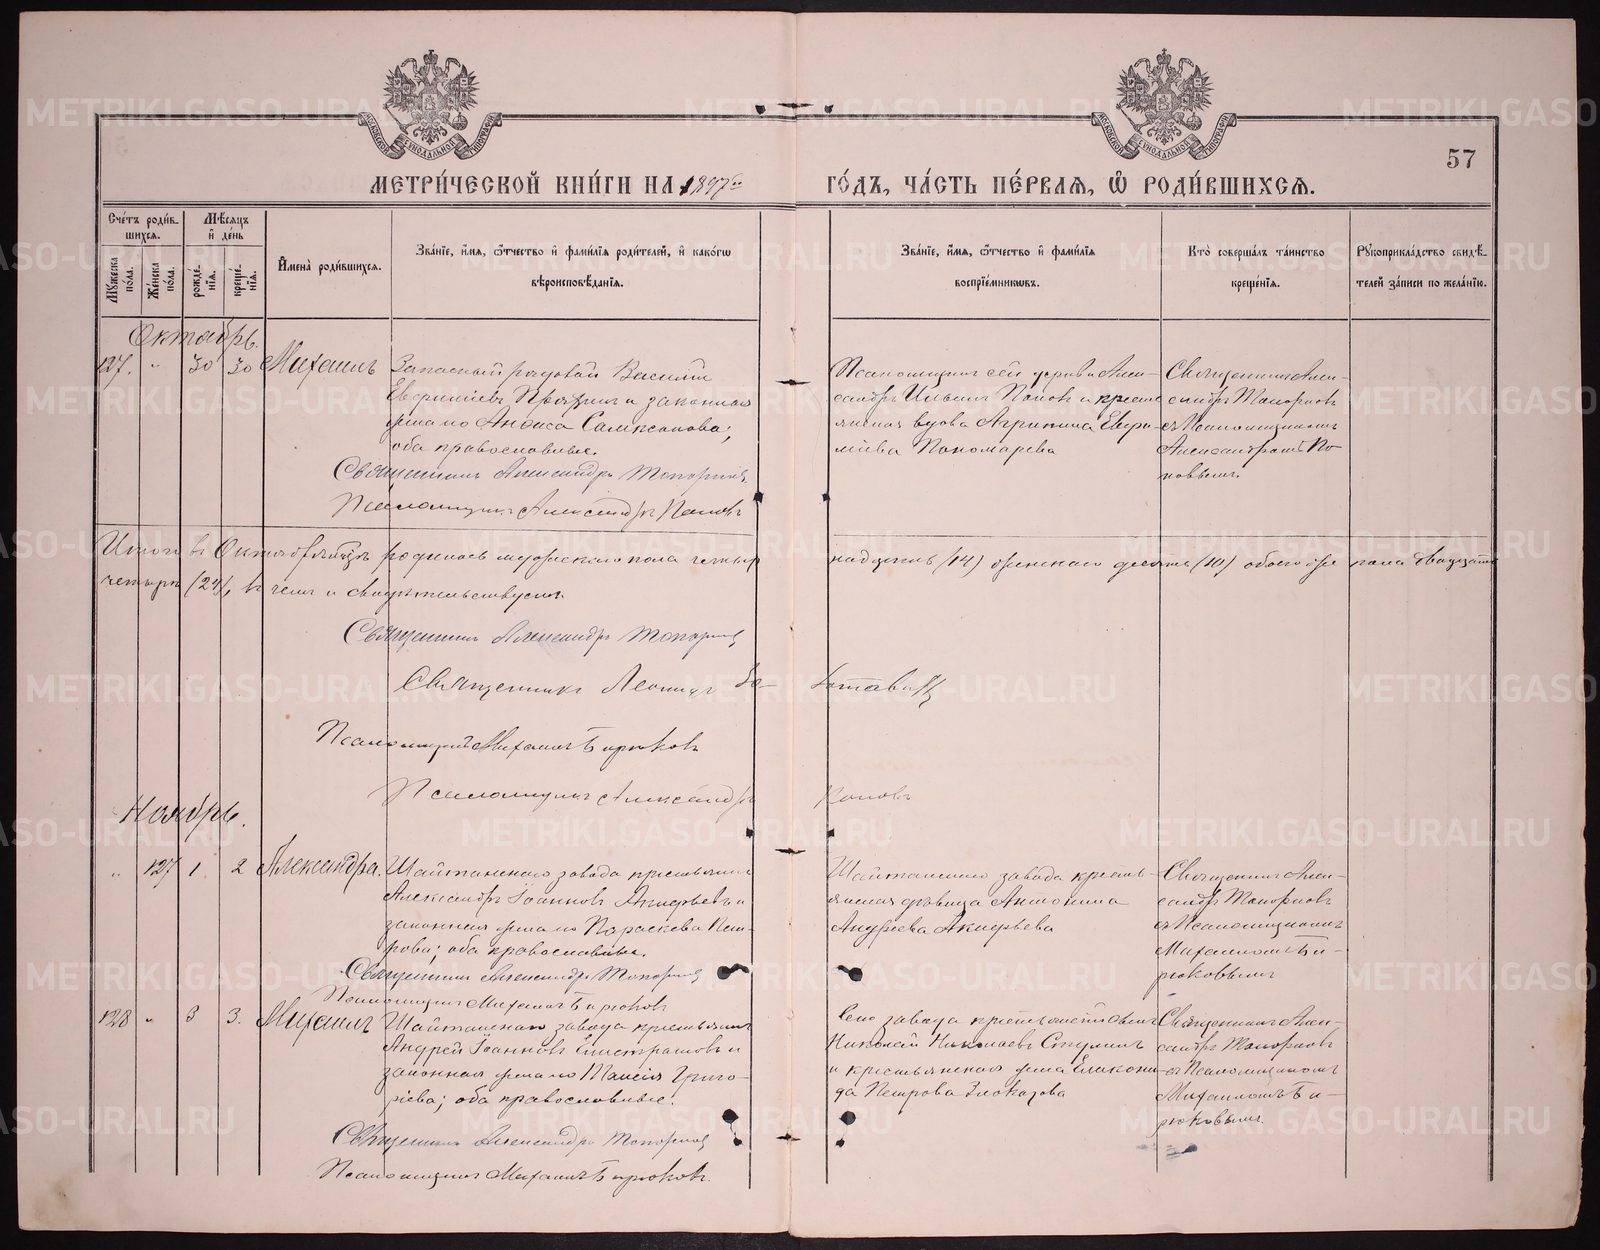 МЕТРИ́ЧЕСКОЙ КНИ́ГИ НА 1897 ГО́ДЪ, ЧА́СТЬ ПЕ́РВАЯ, Ѽ РОДИ́ВШИХСЯ.
57
Сче́тъ роди́в-
шихся.
Мѣ́сяцъ
и҆ де́нь
Мꙋжеска по́ла.
Же́нска по́ла.
рожде́нїѧ.
креще́нїѧ.
И҆мена̀ роди́вшихся.
Зва́нїе, и҆́мѧ, ѻ҆́тчество и҆ фами́лїѧ роди́телей, и҆ како́гѡ
вѣроисповѣ́данїѧ.
Зва́нїе, и҆́мѧ, ѻ҆́тчество и҆ фами́лїѧ
воспрїе́мникѡвъ.
Кто̀ соверша́лъ та́инство
креще́нїѧ.
Рꙋкоприкла́дство свидѣ́-
телей за́писи по жела́нїю.
Октябрь.
127. " 30 30 Михаилъ
Запасный рядовой Василій
и законная
жена его Анѳиса
оба православные.
Священникъ Александръ Топорковъ
Псаломщикъ Александръ Поповъ
Псаломщикъ сей церкви Алек-
сандръ Ильинъ Поповъ и кресть-
янская вдова Агрипина Евѳи-
міева Пономарева
Священникъ Алек-
сандръ Топорковъ
съ Псаломщикомъ
Александромъ По-
повымъ.
Итого въ Октябрѣ мѣсяцѣ родилось мужескаго пола четыр-
надцать (14) женскаго десять (10) обоего же пола двадцать
четыре (24), въ чемъ и свидѣтельствуемъ.
Священникъ Александръ Топорковъ
Священникъ Леонидъ
Псаломщикъ Михаилъ Бирюковъ
Псаломщикъ Александръ Поповъ
Ноябрь.
" 127 1 2 Александра.
Шайтанскаго завода крестьянинъ
Александръ Іоанновъ Акифьевъ и
законная жена его Параскева Пет-
рова; оба православные.
Священникъ Александръ Топорковъ
Псаломщикъ Михаилъ Бирюковъ
Шайтанскаго завода кресть-
янская дѣвица Антонина
Андреева Акифьева
Священникъ Алек-
сандръ Топорковъ
съ Псаломщикомъ
Михаиломъ Би-
рюковымъ
128 " 3 3. Михаилъ
Шайтанскаго завода крестьянинъ
Андрей Іоанновъ Елистратовъ и
законная жена его Таисія Григо-
ріева; оба православные.
Священникъ Александръ Топорковъ
Псаломщикъ Михаилъ Бирюковъ.
Сего завода
Николай Николаевъ
и крестьянская жена Еликони-
да Петрова Злоказова
Священникъ Алек-
сандръ Топорковъ
съ Псаломщикомъ
Михаиломъ Би-
рюковымъ.
METRIKI.GASO-URAL.RU